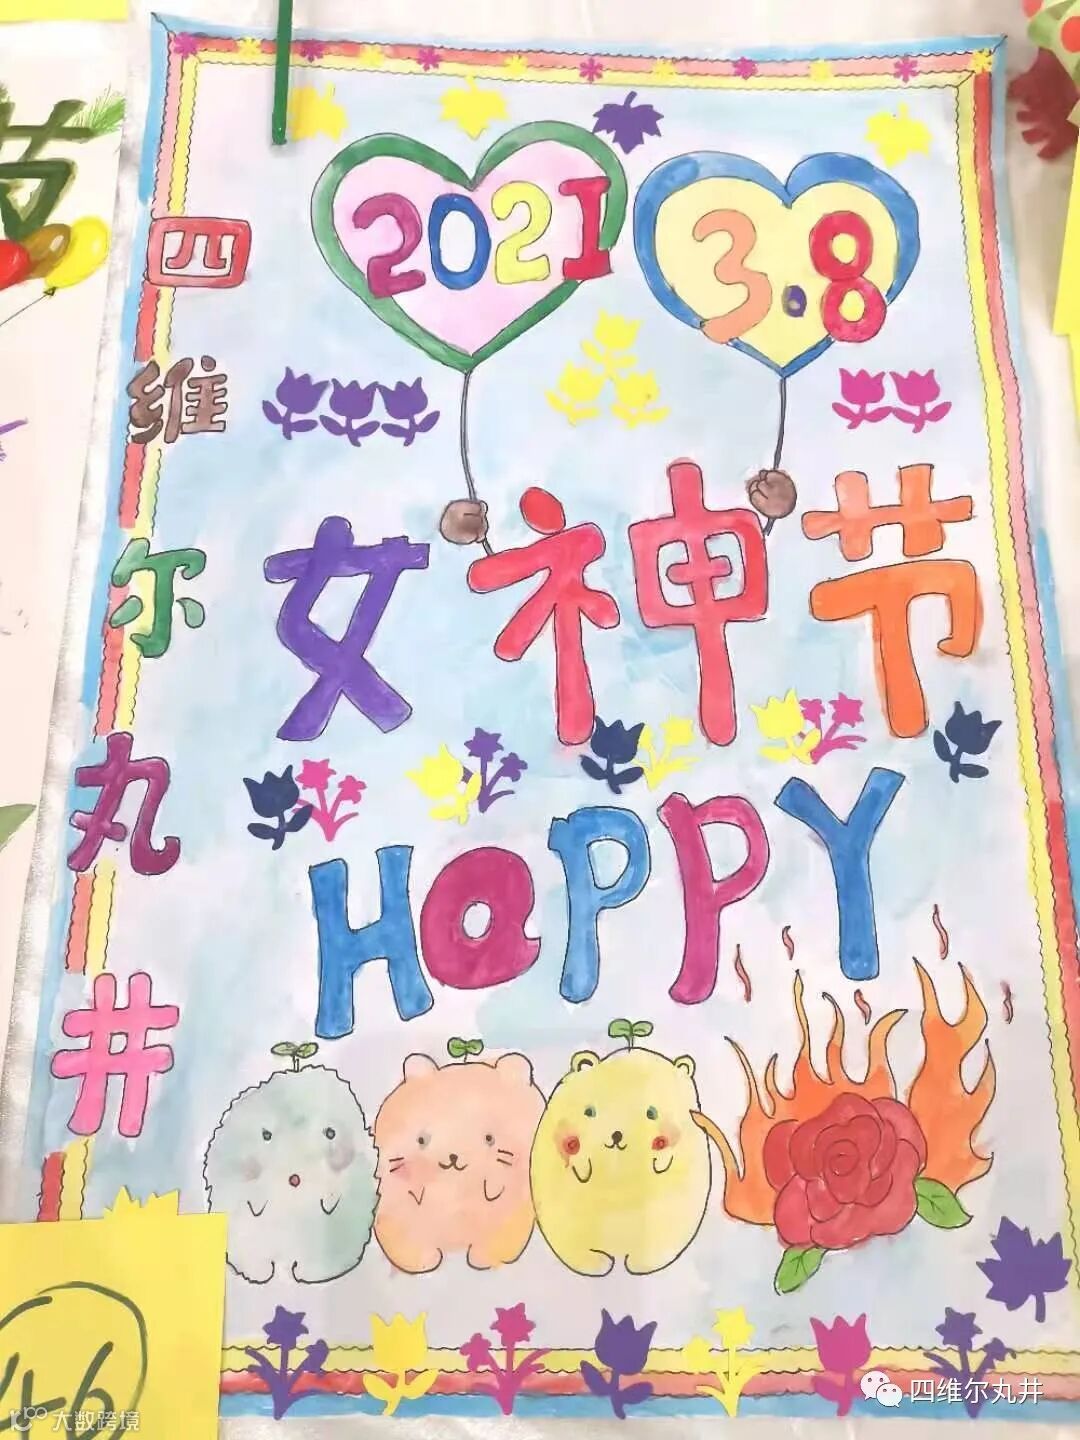 节
2021
3.8
四
维
尔
丸
井
女神节
HaPPY
46
大数跨境
四维尔丸井